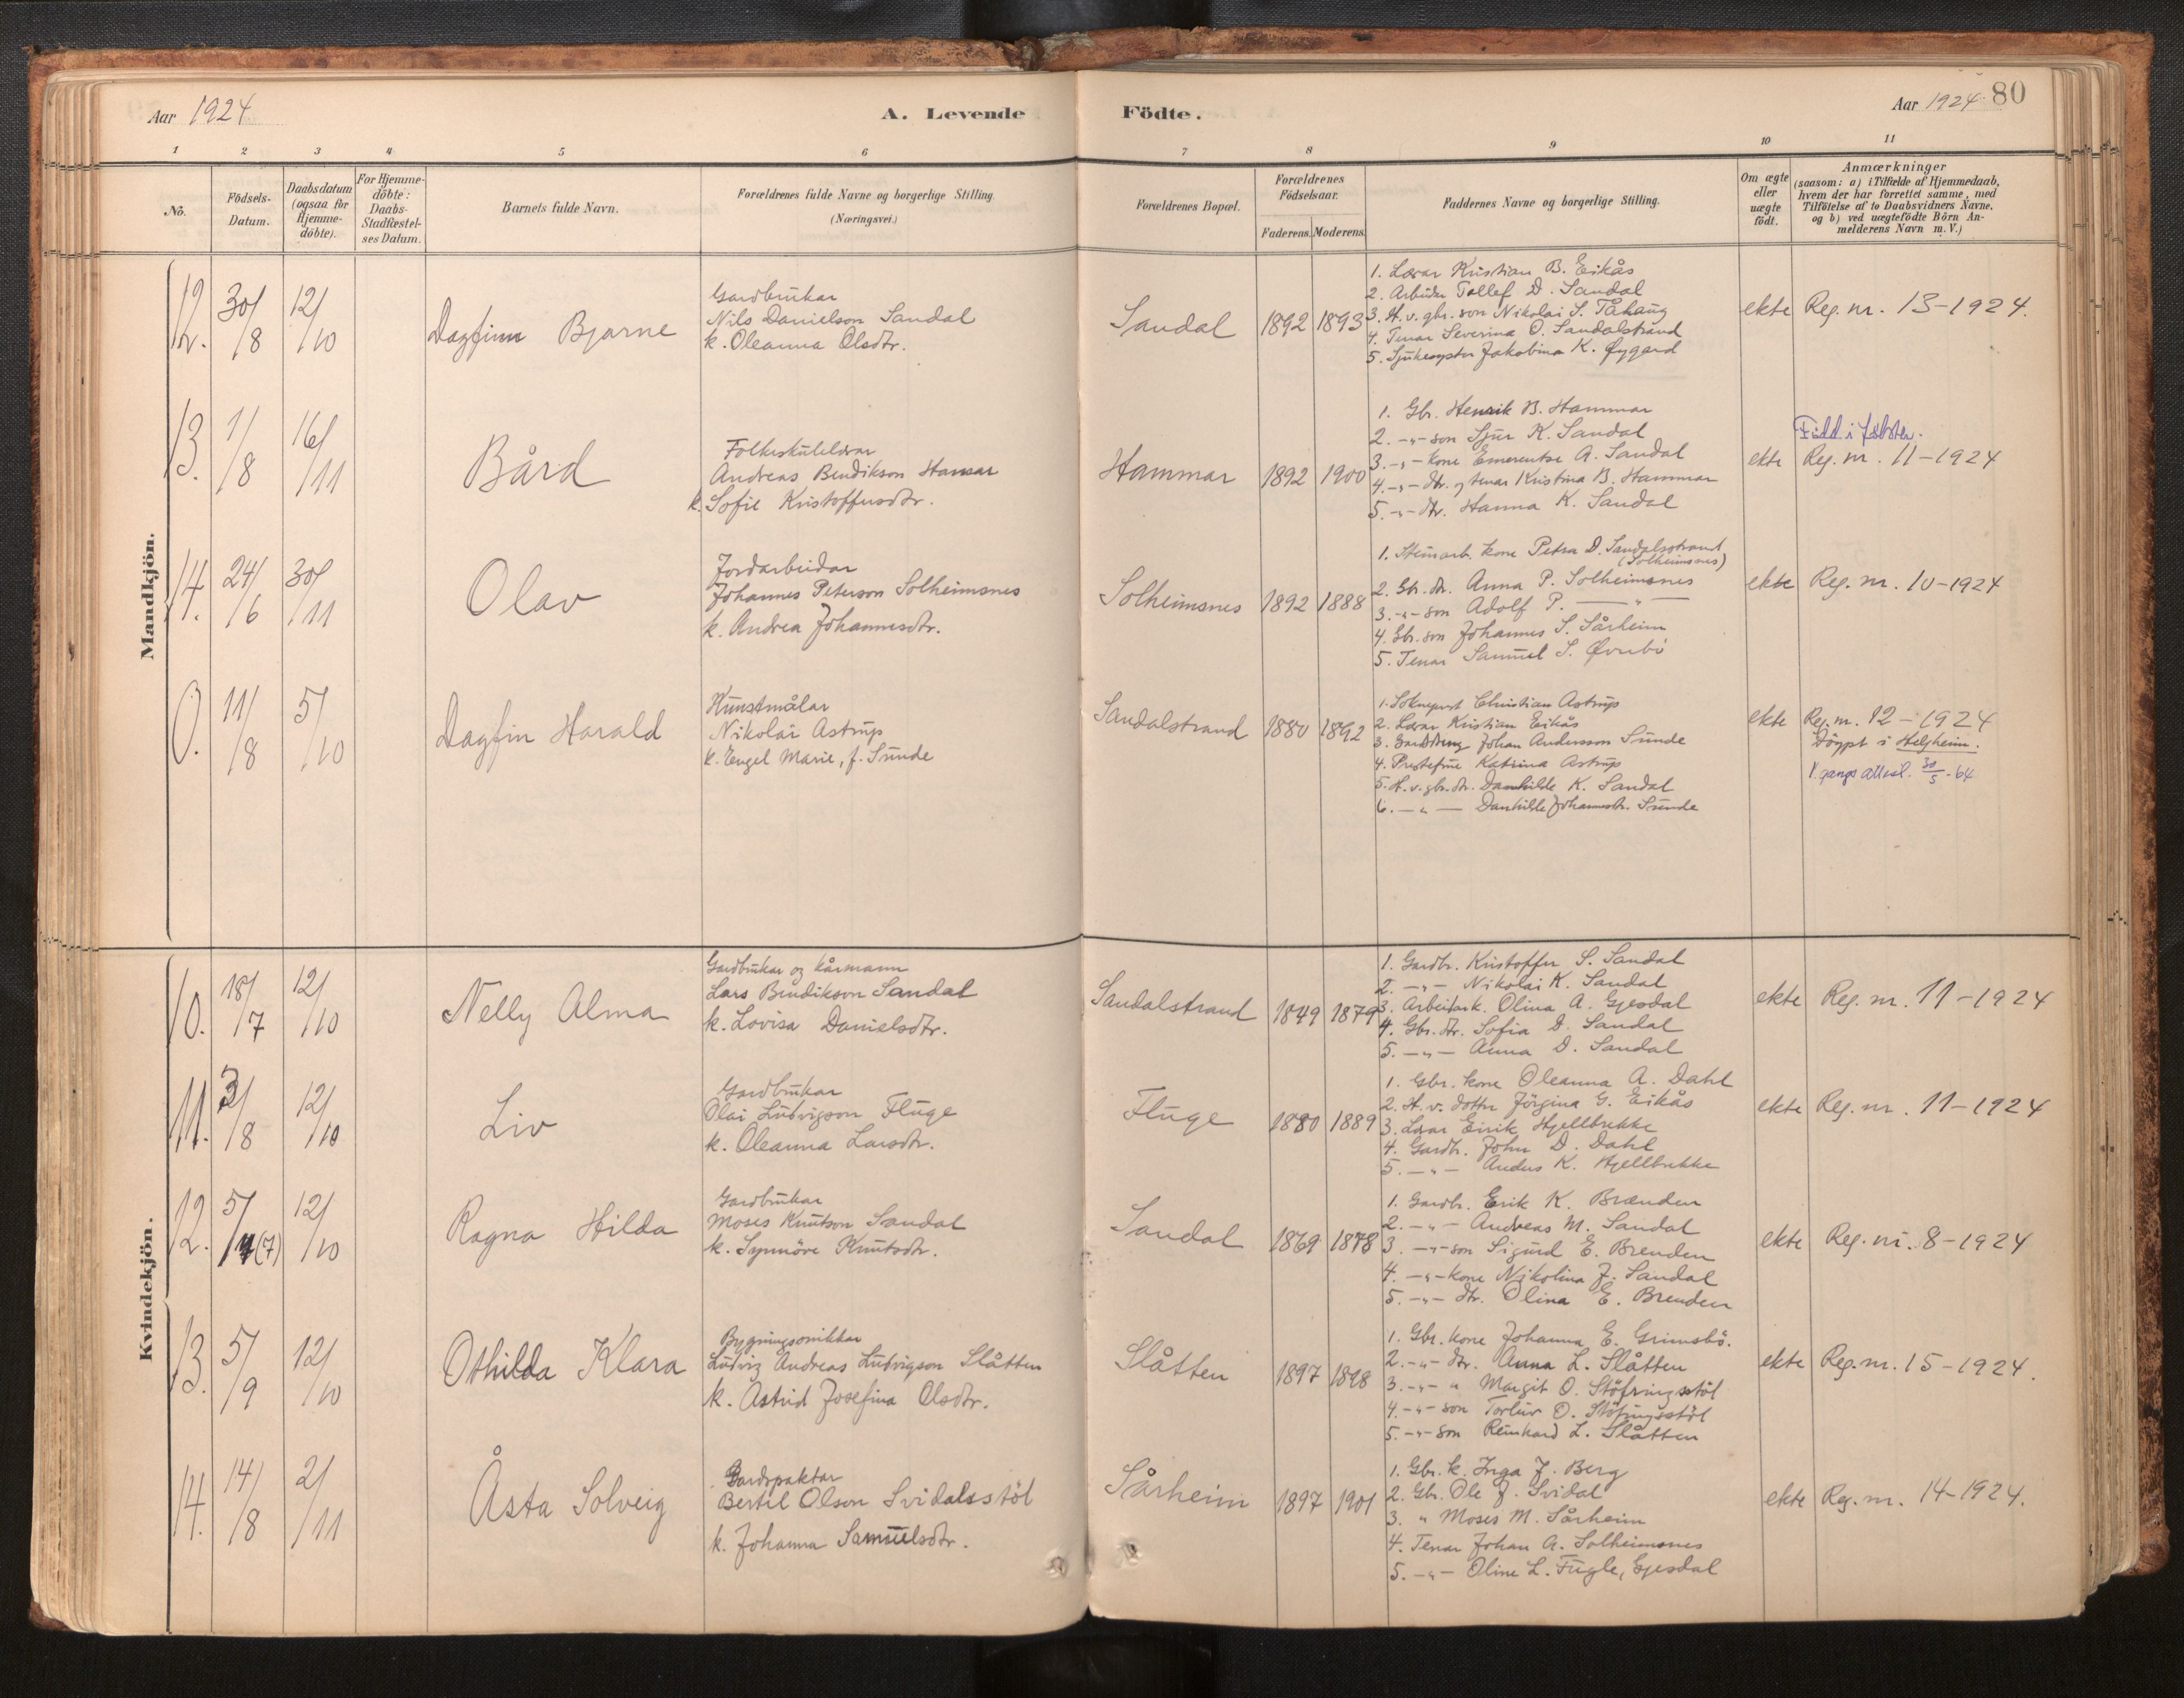 Aar 1924
A. Levende
Födte.
Aar 1924 80
1 2 3 4 5 6 7 8 9 10 11
No.
Födsels-
Datum.
Daabsdatum
(ogsaa for
Hjemme-
döbte).
For Hjemme-
döbte:
Daabs-
Stadfæstel-
ses Datum.
Barnets fulde Navn.
Forældrenes fulde Navne og borgerlige Stilling.
(Næringsvei.)
Forældrenes Bopæl.
Forældrenes
Födselsaar.
Faderens. Moderens.
Faddernes Navne og borgerlige Stilling.
Om ægte
eller
uægte
födt.
Anmærkninger
(saasom: a) i Tilfælde af Hjemmedaab,
hvem der har forrettet samme, med
Tilföielse af to Daabsvidners Navne,
og b) ved uægtefödte Börn An-
melderens Navn m. V.)
Mandkjön.
12. 30/8 12/10
Dagfinn Bjarne
Gardbrukar
Nils Danielson Sandal
k. Oleanna Olsdtr.
Sandal
1892 1893
1. Lærar Kristian B. Eikås
2. Arbeider Tollef D. Sandal
3. H. v. gbr. son Nikolai S. Tåhaug
4. Tenar Severina O. Sandalstrand
5. Sjukesyster Jakobina K. Øygard
ekte
Reg. nr. 13-1924.
13. 1/8 16/11
Bård
Folkeskulelærar
Andreas Bendikson Hammar
k. Sofie Kristoffersdtr.
Hammar
1892 1900
1. Gbr. Henrik B. Hammar
2. -"- son Sjur K. Sandal
3. -"- kone Emerentse A. Sandal
4. -"- dtr. og tenar Kristina B. Hammar
5. -"- dtr. Hanna K. Sandal
ekte
Född i Jölster.
Reg. nr. 11-1924
14. 24/6 30/11
Olav
Jordarbeidar
Johannes Peterson Solheimsnes
k. Andrea Johannesdtr.
Solheimsnes
1892 1888
1. Steinarb. kone Petra D. Sandalsstrand
(Solheimsnes)
2. Gbr. dtr. Anna P. Solheimsnes
3. -"- son Adolf P. — " —
4. Gbr. son Johannes S. Sårheim
5. Tenar Samuel S. Øvrebö
ekte
Reg. nr. 10-1924
0. 11/8 5/10
Dagfin Harald
Kunstmålar
Nikolai Astrup
k. Engel Marie, f. Sunde
Sandalstrand
1880 1892
1. Sokneprest Christian Astrup
2. Lærar Kristian Eikås
3. Johan Andersson Sunde
4. Prestefrue Katrina Astrup
5. H. v. gbr. dtr. Danhilde K. Sandal
6. — " — Danhilde Johannesdtr. Sunde
ekte
Reg. nr. 12-1924
Döypt i Helgheim.
1. gangs attest. 30/5-64
Kvindekjön.
10. 18/7 12/10
Nelly Alma
Gardbrukar og kårmann
Lars Bendikson Sandal
k. Lovisa Danielsdtr.
Sandalstrand
1849 1879
1. Gardbr. Kristoffer S. Sandal
2. -"- Nikolai K. Sandal
3. Arbeidark. Olina A. Gjesdal
4. Gbr. dtr. Sofia D. Sandal
5. -"- Anna D. Sandal
ekte
Reg. nr. 11-1924
11. 3/8 12/10
Liv
Gardbrukar
Olai Ludvigson Fluge
k. Oleanna Larsdtr.
Fluge
1880 1889
1. Gbr. kone Oleanna A. Dahl
2. H. v. dotter Jörgina G. Eikås
3. Lærar Eirik Hjellbrekke
4. Gardbr. John D. Dahl
5. -"- Anders K. Hjellbrekke
ekte
Reg. nr. 11-1924
12. 5/7(7) 12/10
Ragna Hilda
Gardbrukar
Moses Knutson Sandal
k. Synnöve Knutsdtr.
Sandal
1869 1878
1. Gardbr. Erik K. Brænden
2. -"- Andreas M. Sandal
3. -"- son Sigurd E. Brenden
4. -"- kone Nikolina J. Sandal
5. -"- dtr. Olina E. Brenden
ekte
Reg. nr. 8-1924
13. 5/9 12/10
Othilda Klara
Bygningssnikkar
Ludvig Andreas Ludvigson Slåtten
k. Astrid Josefina Olsdtr.
Slåtten
1897 1898
1. Gbr. kone Johanna E. Grimsbö.
2. -"- dtr. Anna L. Slåtten
3. -"- " Margit O. Stöfringsstöl
4. -"- son Torleiv O. Stöfringsstöl
5. -"- son Reinhard L. Slåtten
ekte
Reg. nr. 15-1924.
14. 14/8 2/11
Åsta Solveig
Gardspaktar
Bertil Olson Svidalsstöl
k. Johanna Samuelsdtr.
Sårheim
1897 1901
1. Gbr. k. Inga J. Berg
2. Gbr. Ole J. Svidal
3. " Moses M. Sårheim
4. Tenar Johan A. Solheimsnes
5. -"- Oline L. Fugle, Gjesdal
ekte
Reg. nr. 14-1924.